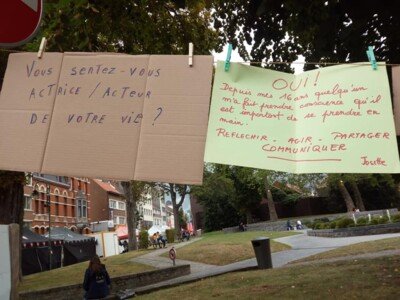 Vous sentez-vous
ACTRICE / ACTEUR
DE VOTRE VIE ?
OUI !
Depuis mes 16 ans quelqu'un
m'a fait prendre conscience qu'il
est important de se prendre en
main.
REFLECHIR - AGIR - PARTAGER
COMMUNIQUER
Josette